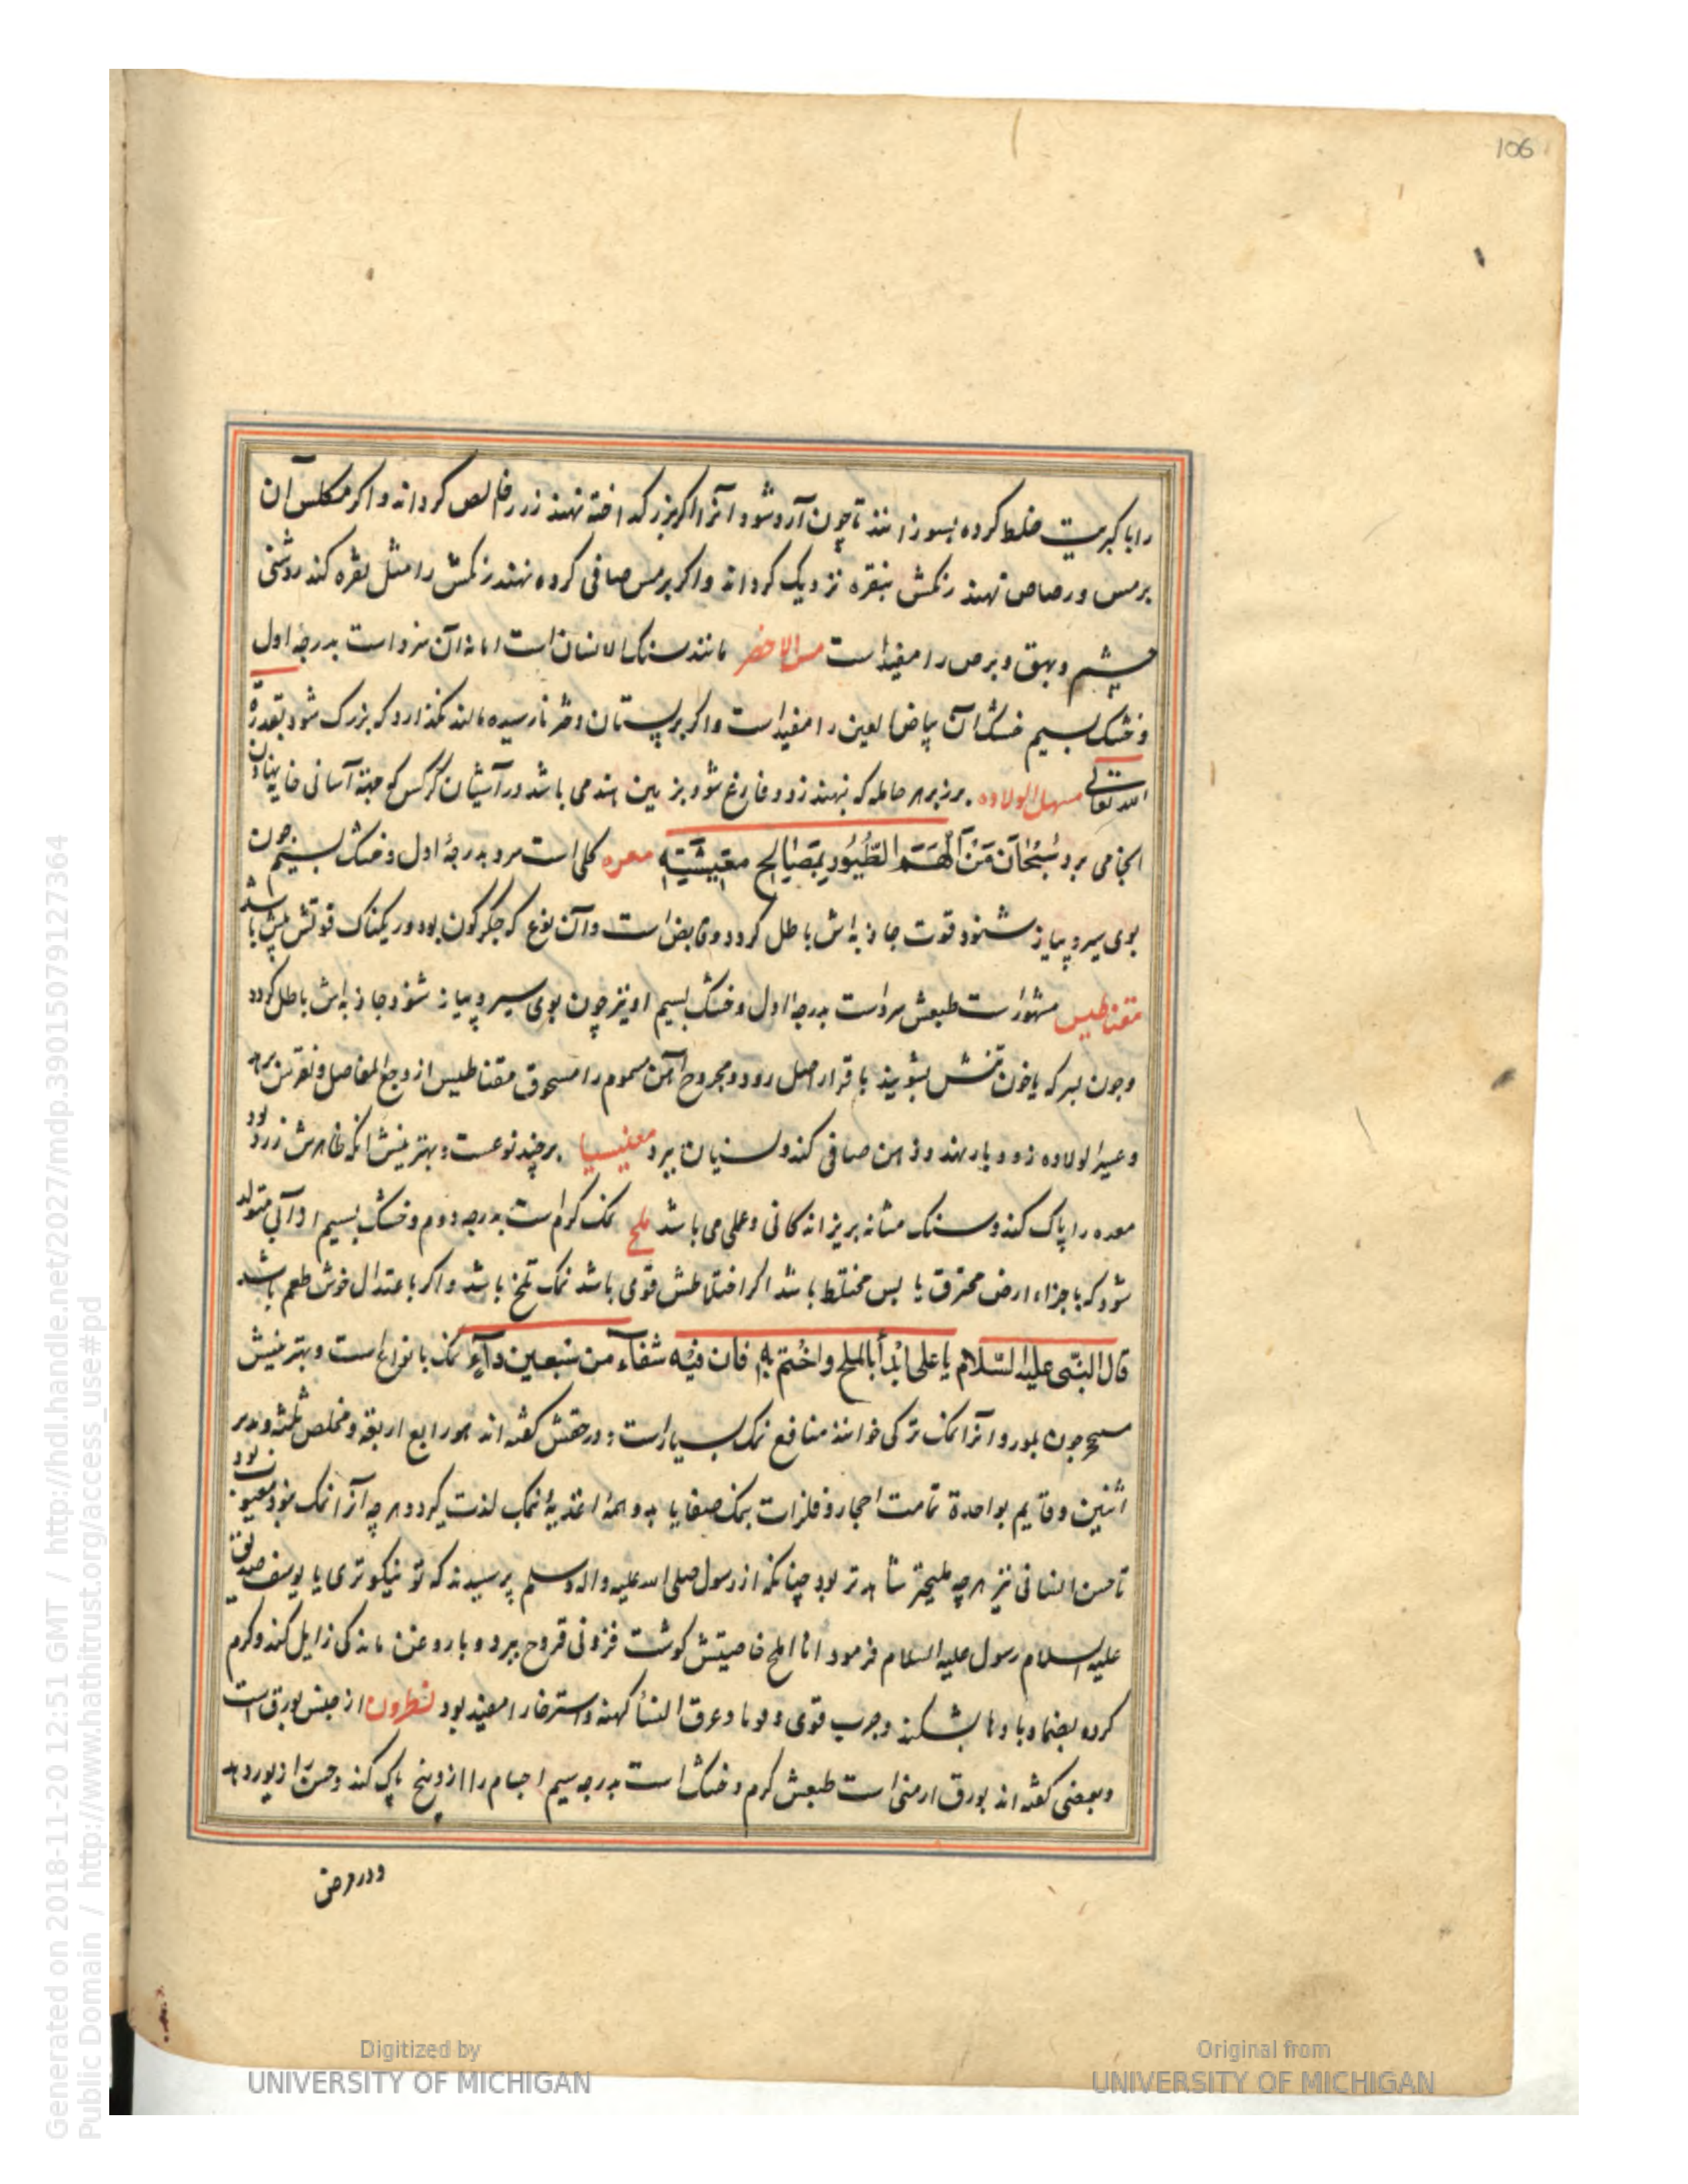 106
را با کبریت خلط کرده بسوزانند تا چون آرد شود و آنرا اکر بزر کداخته نهند زر را خالص کرداند و اکر مکلس آن
بر مس و رصاص نهند رنکش بنقره نزدیک کرداند و اکر بر مس صافی کرده نهند رنکش را مثل نقره کند روشنی
چشم و بهق و برص را مفید است مس الاخضر مانند سنک الانسان است اما نه آن سرد است بدرجۀ اول
و خشک بسیم خشک آن بیاض العین را مفید است و اکر بر پستان دختر نارسیده مالند نکذارد که بزرک شود بقدرة
الله تعالی مسهل الولاده بر زهر حامله که نهند زود فارغ شود بزمین هند می باشد در آشیان کرکس که جهة آسانی خایه نهادن
انجا می برد سُبْحَانَ مَنْ اَلْهَمَ الطُّيُورَ بِمَصَالِحِ مَعِيشَتِهِ معره کلی است سرد بدرجۀ اول و خشک بسیم چون
بوی سیر و پیاز شنود قوت جاذبه اش باطل کردد و قابض است و آن نوع که جکرکون بود و ریکناک قوتش بیش باشد
مقناطیس مشهور است طبعش سرد است بدرجۀ اول و خشک بسیم او نیز چون بوی سیر و پیاز شنود جاذبه اش باطل کردد
و چون بسرکه یا خون تیسش بشویند با قرار اصل رود و مجروح آهن مسموم را مسحوق مقناطیس از وجع المفاصل و نقرس برهد
و عسیر الولاده زود بار نهد و ذهن صافی کند و نسیان ببرد مغنیسیا بر چند نوعست و بهترینش آنکه ظاهرش زرد بود
معده را پاک کند و سنک مثانه بریزاند کانی و عملی می باشد ملح نمک کرم است بدرجه دوم و خشک بسیم از آبی متولد
شود که با جزاء ارض محترق یابس مختلط باشد اکر اختلاطش قوی باشد نمک تلخ باشد و اکر باعتدال خوش طعم باشد
قال النبی علیه السّلام یا علی ابدأ بالملح و اختم به فان فیه شفاء من سبعین داء نمک بانواع است و بهترینش
سپید چون بلور و آنرا نمک ترکی خوانند منافع نمک بسیار است و در حقش کفته اند هو رابع اربعة و مخلص ثلثه و مدبر
اثنین و قایم بواحدة تمامت احجار و فلزات بنمک صفا یابد و همۀ اغذیه بنمک لذت کیرد و هر چه آنرا نمک نبود معیوب بود
تا حسن انسانی نیز هر چه ملیحتر شاهدتر بود چنانکه از رسول صلی الله علیه واله وسلم پرسیدند که تو نیکوتری یا یوسف صدیق
علیه السلام رسول علیه السلام فرمود انا املح خاصیتش کوشت فزونی قروح ببرد و با روغن ماندکی زایل کند و کرم
کرده بضماد بادها بشکند و جرب قوی و قوبا و عرق النسا کهنه و استرخا را مفید بود نطرون از جنس بورق است
و بعضی کفته اند بورق ارمنی است طبعش کرم و خشک است بدرجه سیم اجسام را از وسخ پاک کند و حسن را زیور دهد
و در مرض
Digitized by
UNIVERSITY OF MICHIGAN
Original from
UNIVERSITY OF MICHIGAN
Generated on 2018-11-20 12:51 GMT / http://hdl.handle.net/2027/mdp.39015079127364
Public Domain / http://www.hathitrust.org/access_use#pd